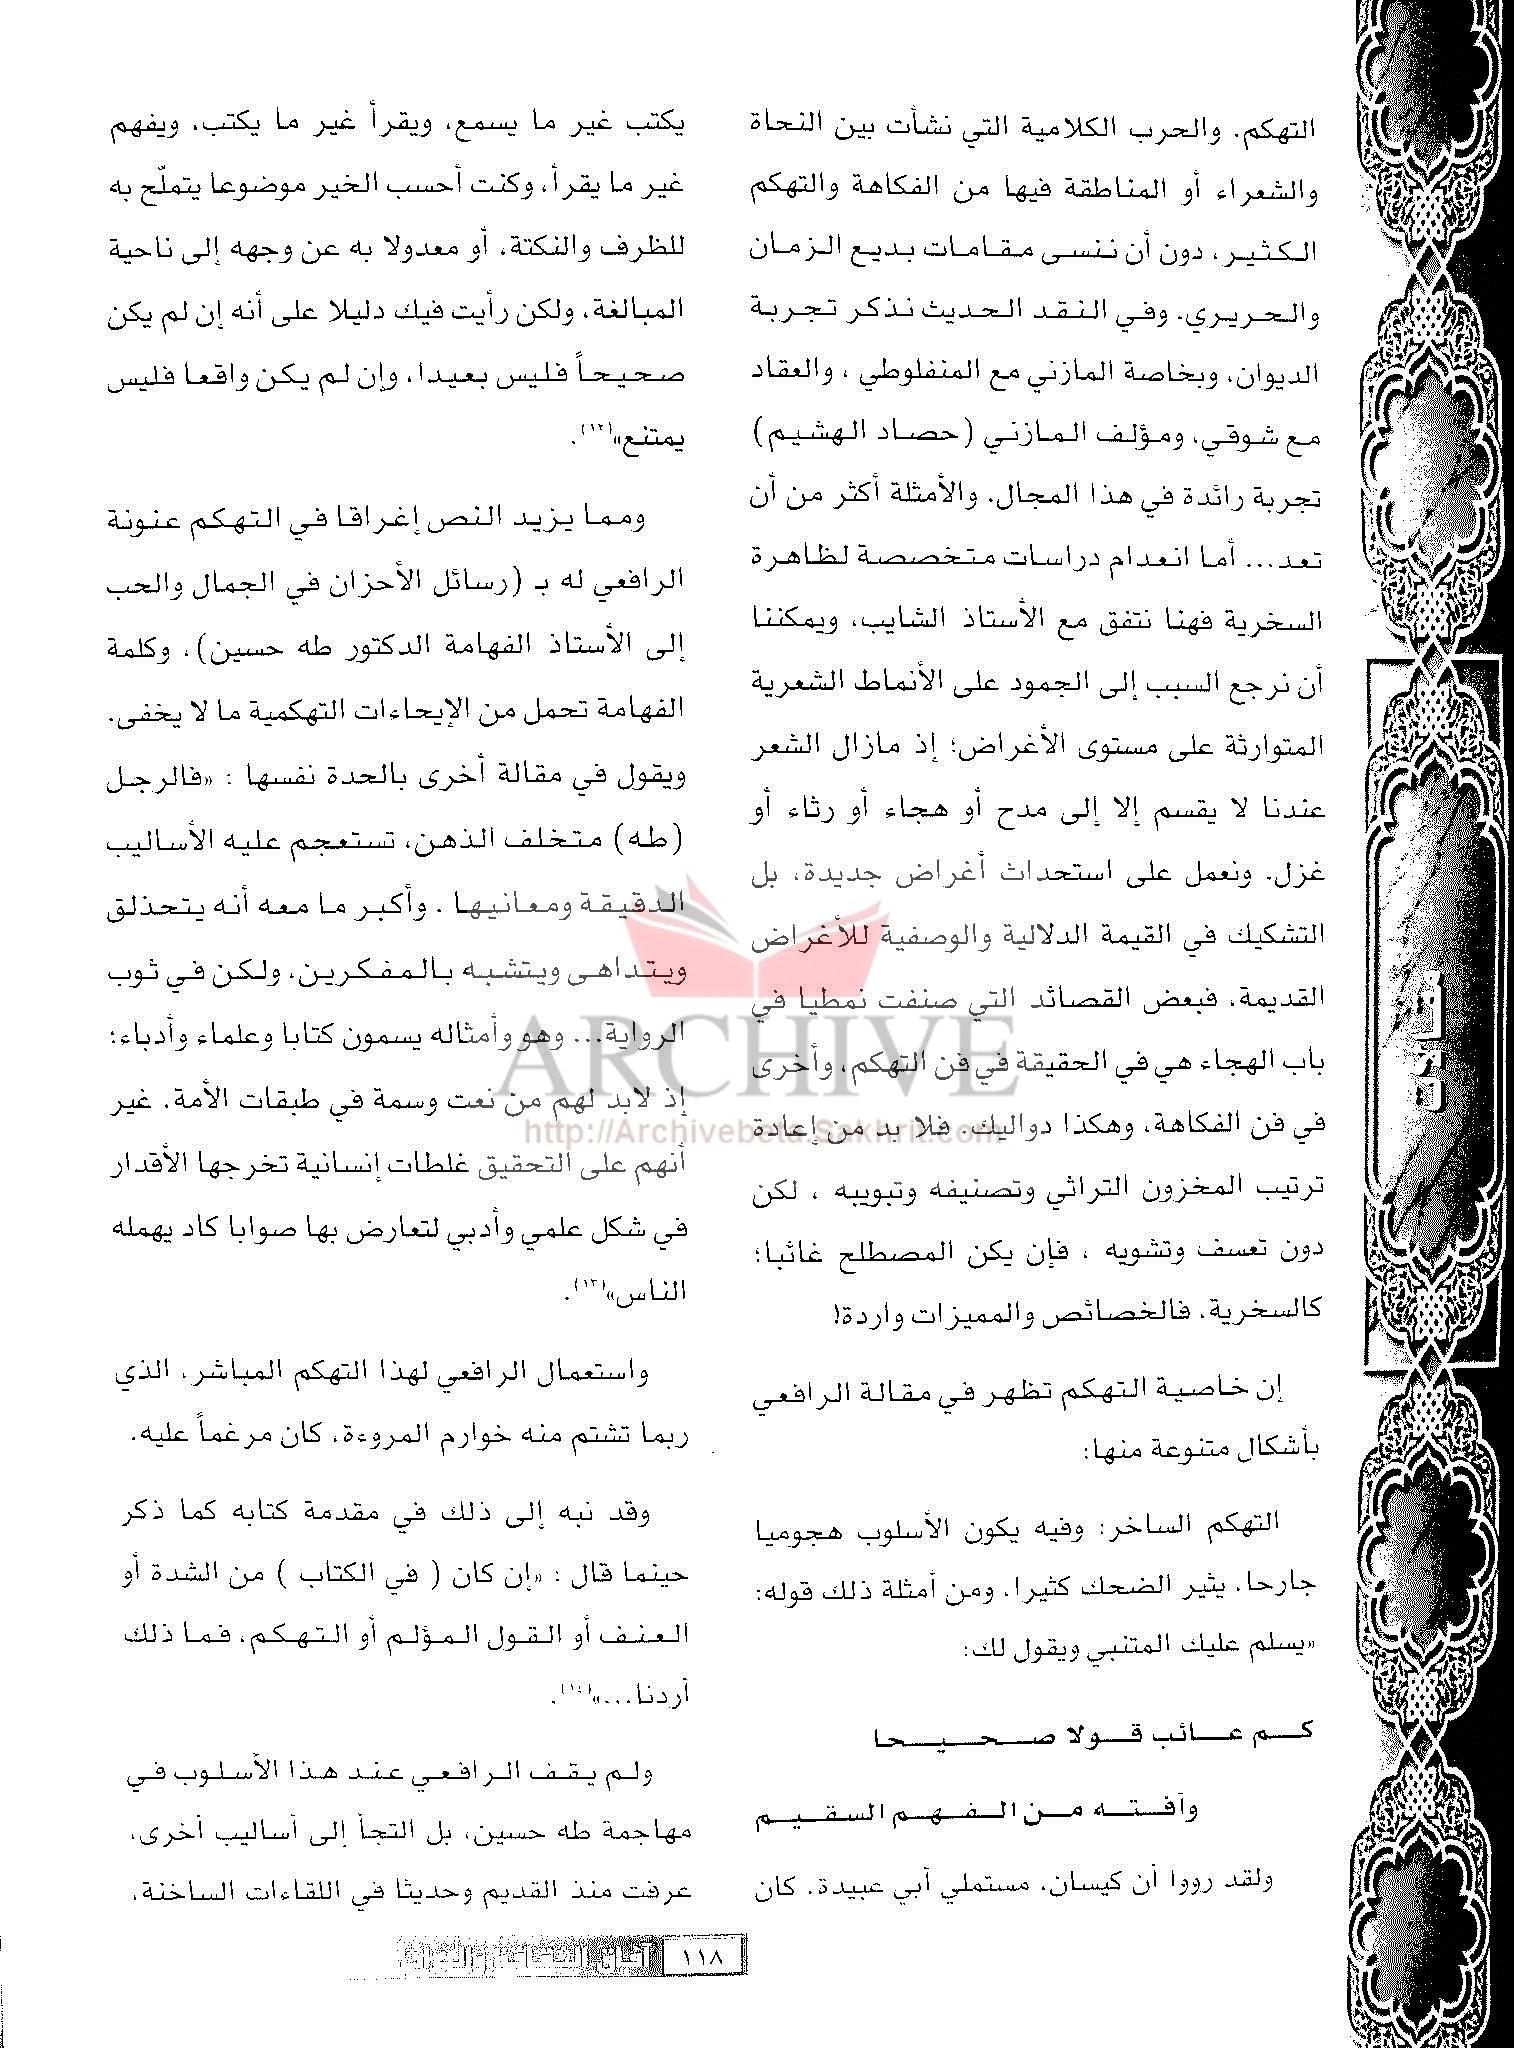 التهكم. والحرب الكلامية التي نشأت بين النحاة
والشعراء أو المناطقة فيها من الفكاهة والتهكم
الكثير، دون أن ننسى مقامات بديع الزمان
والحريري. وفي النقد الحديث نذكر تجربة
الديوان، وبخاصة المازني مع المنفلوطي ، والعقاد
مع شوقي، ومؤلف المازني (حصاد الهشيم)
تجربة رائدة في هذا المجال. والأمثلة أكثر من أن
تعد... أما انعدام دراسات متخصصة لظاهرة
السخرية فهنا نتفق مع الأستاذ الشايب، ويمكننا
أن نرجع السبب إلى الجمود على الأنماط الشعرية
المتوارثة على مستوى الأغراض؛ إذ مازال الشعر
عندنا لا يقسم إلا إلى مدح أو هجاء أو رثاء أو
غزل. ونعمل على استحداث أغراض جديدة، بل
التشكيك في القيمة الدلالية والوصفية للأغراض
القديمة، فبعض القصائد التي صنفت نمطيا في
باب الهجاء هي في الحقيقة في فن التهكم، وأخرى
في فن الفكاهة، وهكذا دواليك. فلا بد من إعادة
ترتيب المخزون التراثي وتصنيفه وتبويبه ، لكن
دون تعسف وتشويه ، فإن يكن المصطلح غائبا؛
كالسخرية، فالخصائص والمميزات واردة!
إن خاصية التهكم تظهر في مقالة الرافعي
بأشكال متنوعة منها:
التهكم الساخر: وفيه يكون الأسلوب هجوميا
جارحا، يثير الضحك كثيرا، ومن أمثلة ذلك قوله:
«يسلم عليك المتنبي ويقول لك:
كم عائب قولا صحيحا
وآفته من الفهم السقيم
ولقد رووا أن كيسان، مستملي أبي عبيدة، كان
يكتب غير ما يسمع، ويقرأ غير ما يكتب، ويفهم
غير ما يقرأ، وكنت أحسب الخير موضوعا يتملّح به
للظرف والنكتة، أو معدولا به عن وجهه إلى ناحية
المبالغة، ولكن رأيت فيك دليلا على أنه إن لم يكن
صحيحاً فليس بعيدا، وإن لم يكن واقعا فليس
يمتنع»(١٢).
ومما يزيد النص إغراقا في التهكم عنونة
الرافعي له بـ (رسائل الأحزان في الجمال والحب
إلى الأستاذ الفهامة الدكتور طه حسين)، وكلمة
الفهامة تحمل من الإيحاءات التهكمية ما لا يخفى.
ويقول في مقالة أخرى بالحدة نفسها : «فالرجل
(طه) متخلف الذهن، تستعجم عليه الأساليب
الدقيقة ومعانيها . وأكبر ما معه أنه يتحذلق
ويتداهى ويتشبه بالمفكرين، ولكن في ثوب
الرواية... وهو وأمثاله يسمون كتابا وعلماء وأدباء؛
إذ لابد لهم من نعت وسمة في طبقات الأمة، غير
أنهم على التحقيق غلطات إنسانية تخرجها الأقدار
في شكل علمي وأدبي لتعارض بها صوابا كاد يهمله
الناس»(١٣).
واستعمال الرافعي لهذا التهكم المباشر، الذي
ربما تشتم منه خوارم المروءة، كان مرغماً عليه.
وقد نبه إلى ذلك في مقدمة كتابه كما ذكر
حينما قال : «إن كان ( في الكتاب ) من الشدة أو
العنف أو القول المؤلم أو التهكم، فما ذلك
أردنا...»(١٤).
ولم يقف الرافعي عند هذا الأسلوب في
مهاجمة طه حسين، بل التجأ إلى أساليب أخرى،
عرفت منذ القديم وحديثا في اللقاءات الساخنة،
مقالات
١١٨
ARCHIVE
http://Archivebeta.Sakhrit.com